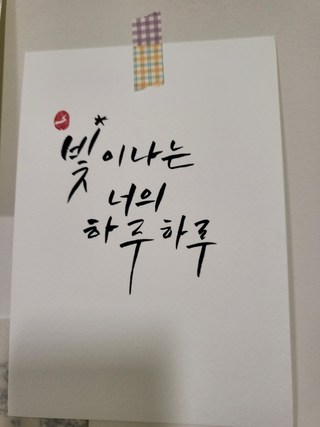 빛이나는
너의
하루하루